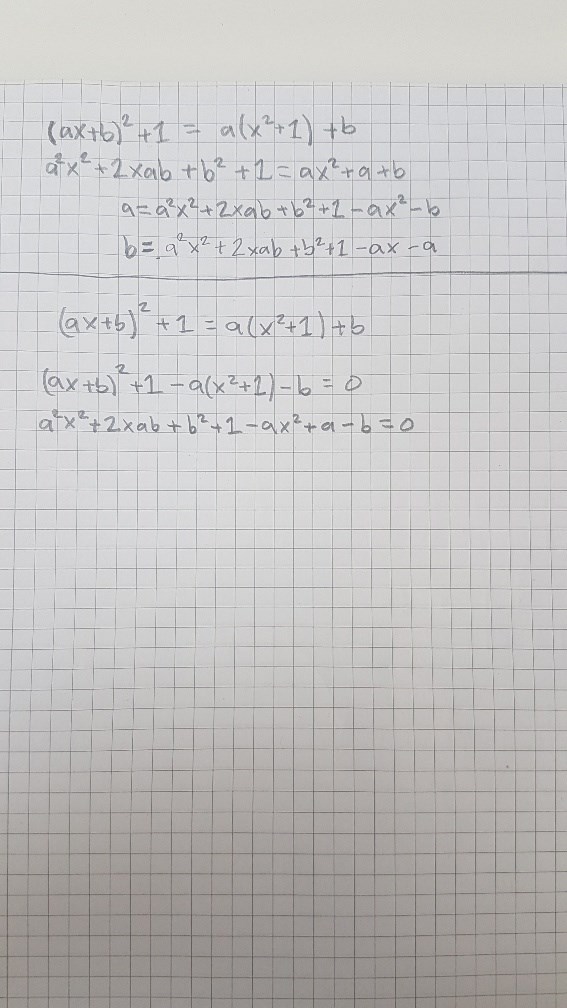 (ax+b)² +1 = a(x²+1) +b
a²x² + 2xab + b² + 1 = ax² + a + b
a = a²x² + 2xab + b² + 1 - ax² - b
b = a²x² + 2xab + b² + 1 - ax - a
(ax+b)² + 1 = a(x²+1) + b
(ax+b)² + 1 - a(x²+1) - b = 0
a²x² + 2xab + b² + 1 - ax² + a - b = 0